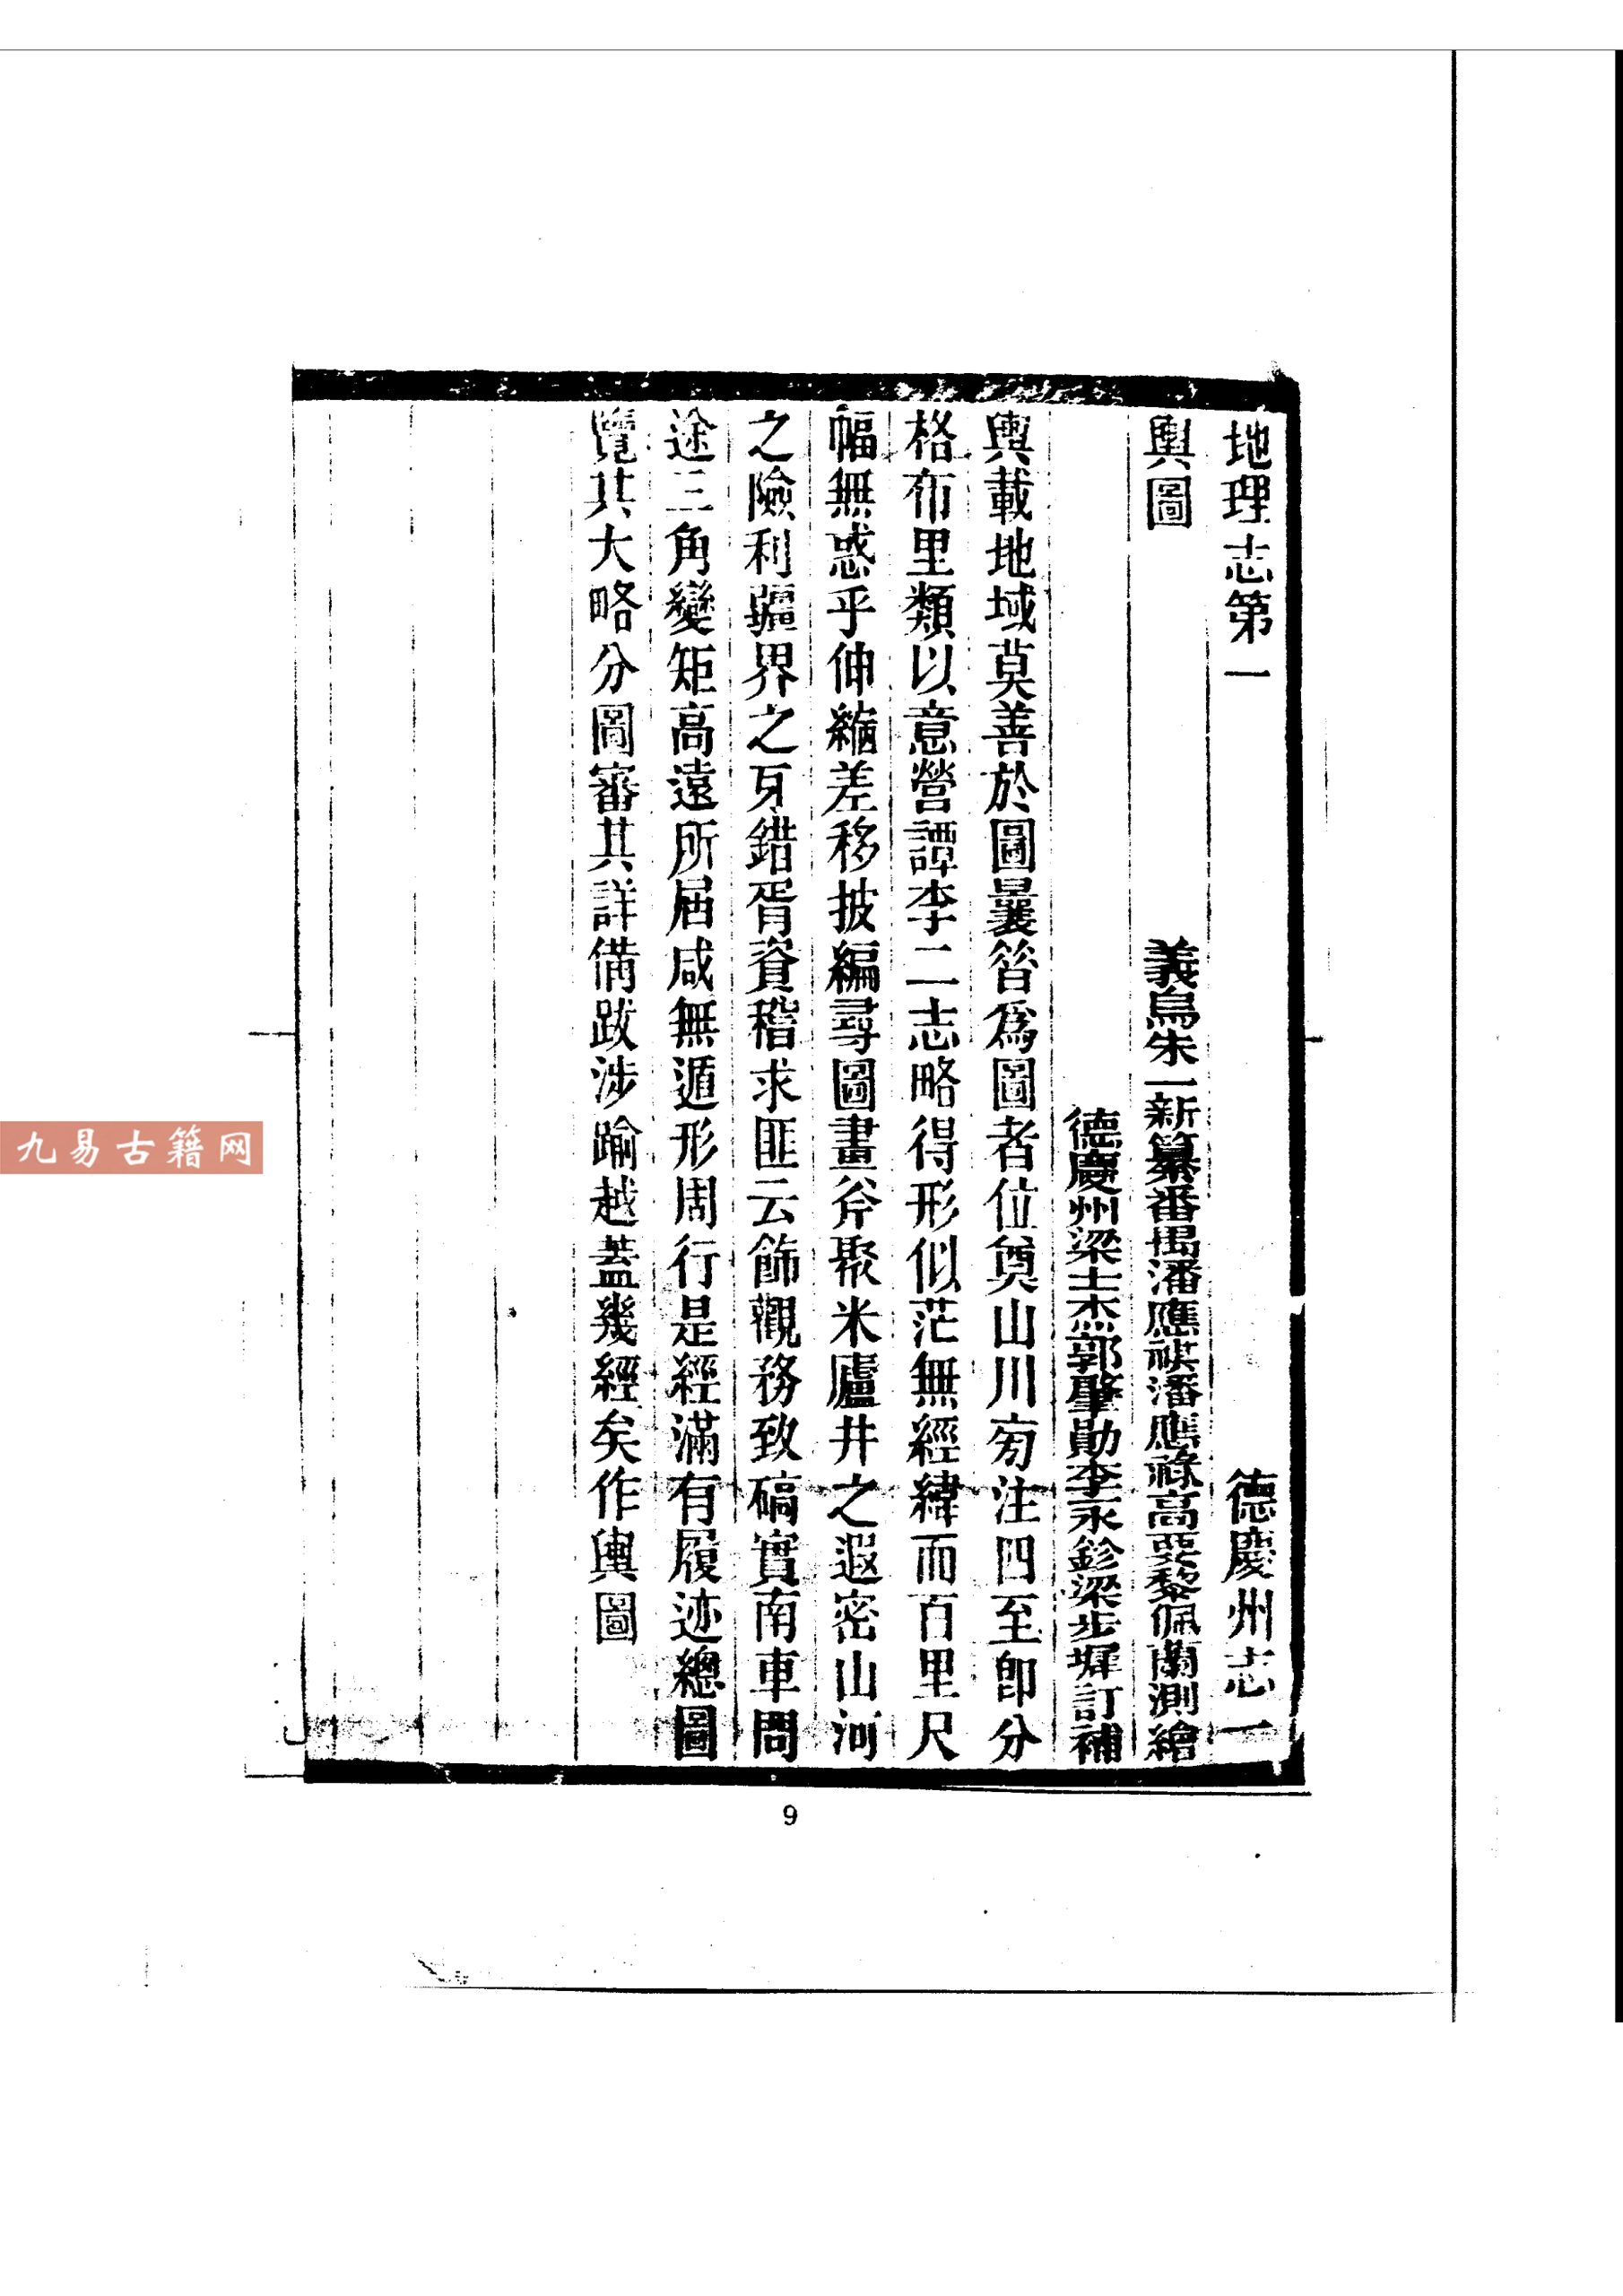 地理志第一　德慶州志一
輿圖　義烏朱一新纂番禺潘應祺潘應祿高要黎佩蘭測繪
德慶州梁士杰郭肇勛李永鉁梁步墀訂補
輿載地域莫善於圖曩昝為圖者位奠山川旁注四至卽分
格布里類以意營譚李二志略得形似茫無經緯而百里尺
幅無惑乎伸縮差移披編尋圖畫斧聚米廬井之遐密山河
之險利疆界之牙錯胥資稽求匪云飾觀務致碻實南車問
途三角變矩高遠所屆咸無遁形周行是經滿有履迹總圖
覽其大略分圖審其詳備跋涉踰越蓋幾經矣作輿圖
9
九易古籍网